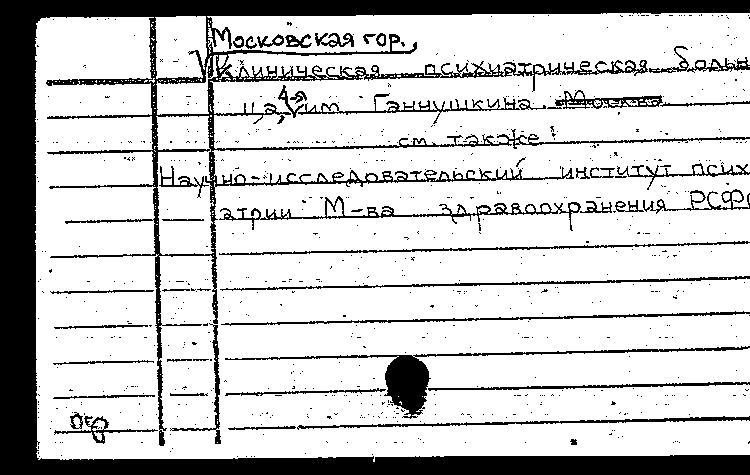 Московская гор.,
Клиническая психиатрическая больни
ца, 4 им. Ганнушкина. Москва
см. также:
Научно-исследовательский институт псих
атрии М-ва здравоохранения РСФС